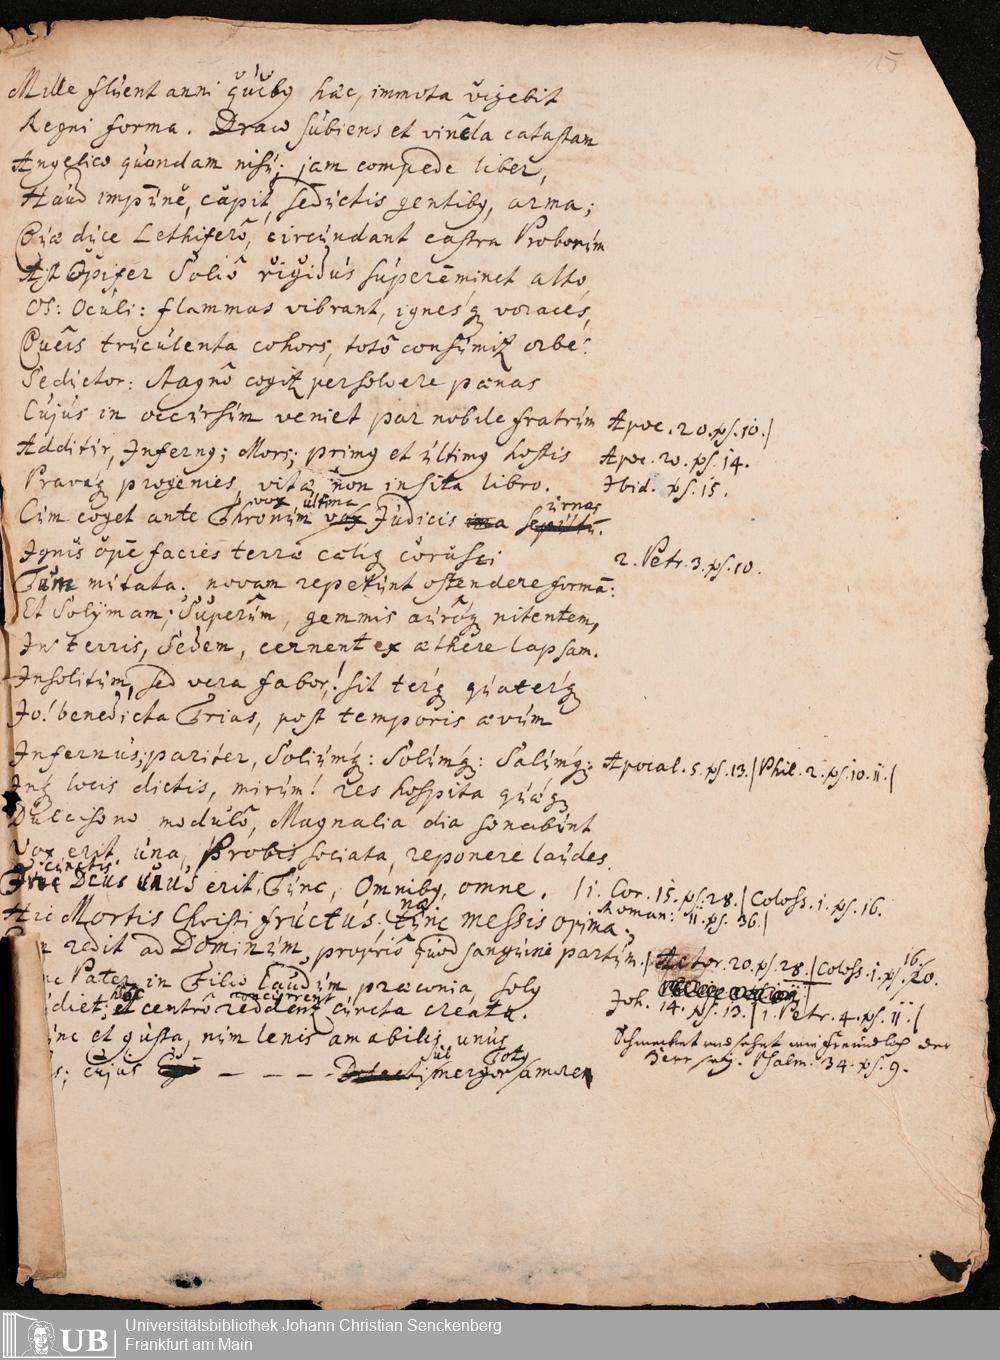 15
Mille fluent anni quib9 hac, immota vigebit
Regni forma. Draco subiens et vincla catastam
Angelico quondam nisu; jam compede liber,
Haud impune, capit, seductis gentib9, arma;
Quæ duce Lethifero, circundant castra Proborum
Ast Opifer Solio rigidus supereminet alto,
Os: Oculi: flammas vibrant, ignesq voraces,
Queis truculenta cohors, toto consumit orbe.
Seductor: stagno cogit persolvere pænas
Cujus in occursum veniet par nobile fratrum Apoc. 20. ps. 10. |
Additur, Infern9; Mors; prim9 et ultim9 hostis Apoc. 20. ps. 14.
Pravaq progenies, vitæ non insita libro. Ibid. ps. 15.
vox ultima urnas
Cum coget ante Thronum vox Judicis ima
Ignis ope facies terræ cæliq corusci 2. Petr. 3. ps. 10.
Tum mutata: novam repetunt ostendere formã:
Et Solymam; Superum, gemmis auroq nitentem,
In terris, Sedem, cernent ex æthere lapsam.
Insolitum, sed vera fabor,! sit terq quaterq
Jo! benedicta Trias, post temporis ævum
Infernus; pariter, Soliumq: Solumq: Salumq: Apocal. 5. ps. 13. | Phil. 2. ps. 10. 11. |
Inq locis dictis, mirum! res hospita quæq
Dulcisono modulo, Magnalia dia sonabunt
Vox erit una, Probis sociata, reponere laudes.
cunctis
Deus unus erit. Tunc, Omnib9, omne. | 1. Cor. 15. ps. 28. | Coloss. 1. ps. 16.
nas Roman: 11. ps. 36. |
Hic Mortis Christi fructus. tunc messis opima.
redit ad Dominum, proprio quod sanguine partum. | Actor. 20. ps. 28. | Coloss. 1. ps. 16. 20.
Pater in Filio Laudum præconia, sol9
concurrent Joh. 14. ps. 13. | 1. Petr. 4. ps. 11. |
et centro reddent cuncta creata.
et gusta, num lenis amabilis unus Schmecket und sehet wie freundlich der
Herr sey. Psalm. 34. ps. 9.
Tot9
cujus – – – – mergor amore
UB
Universitätsbibliothek Johann Christian Senckenberg
Frankfurt am Main